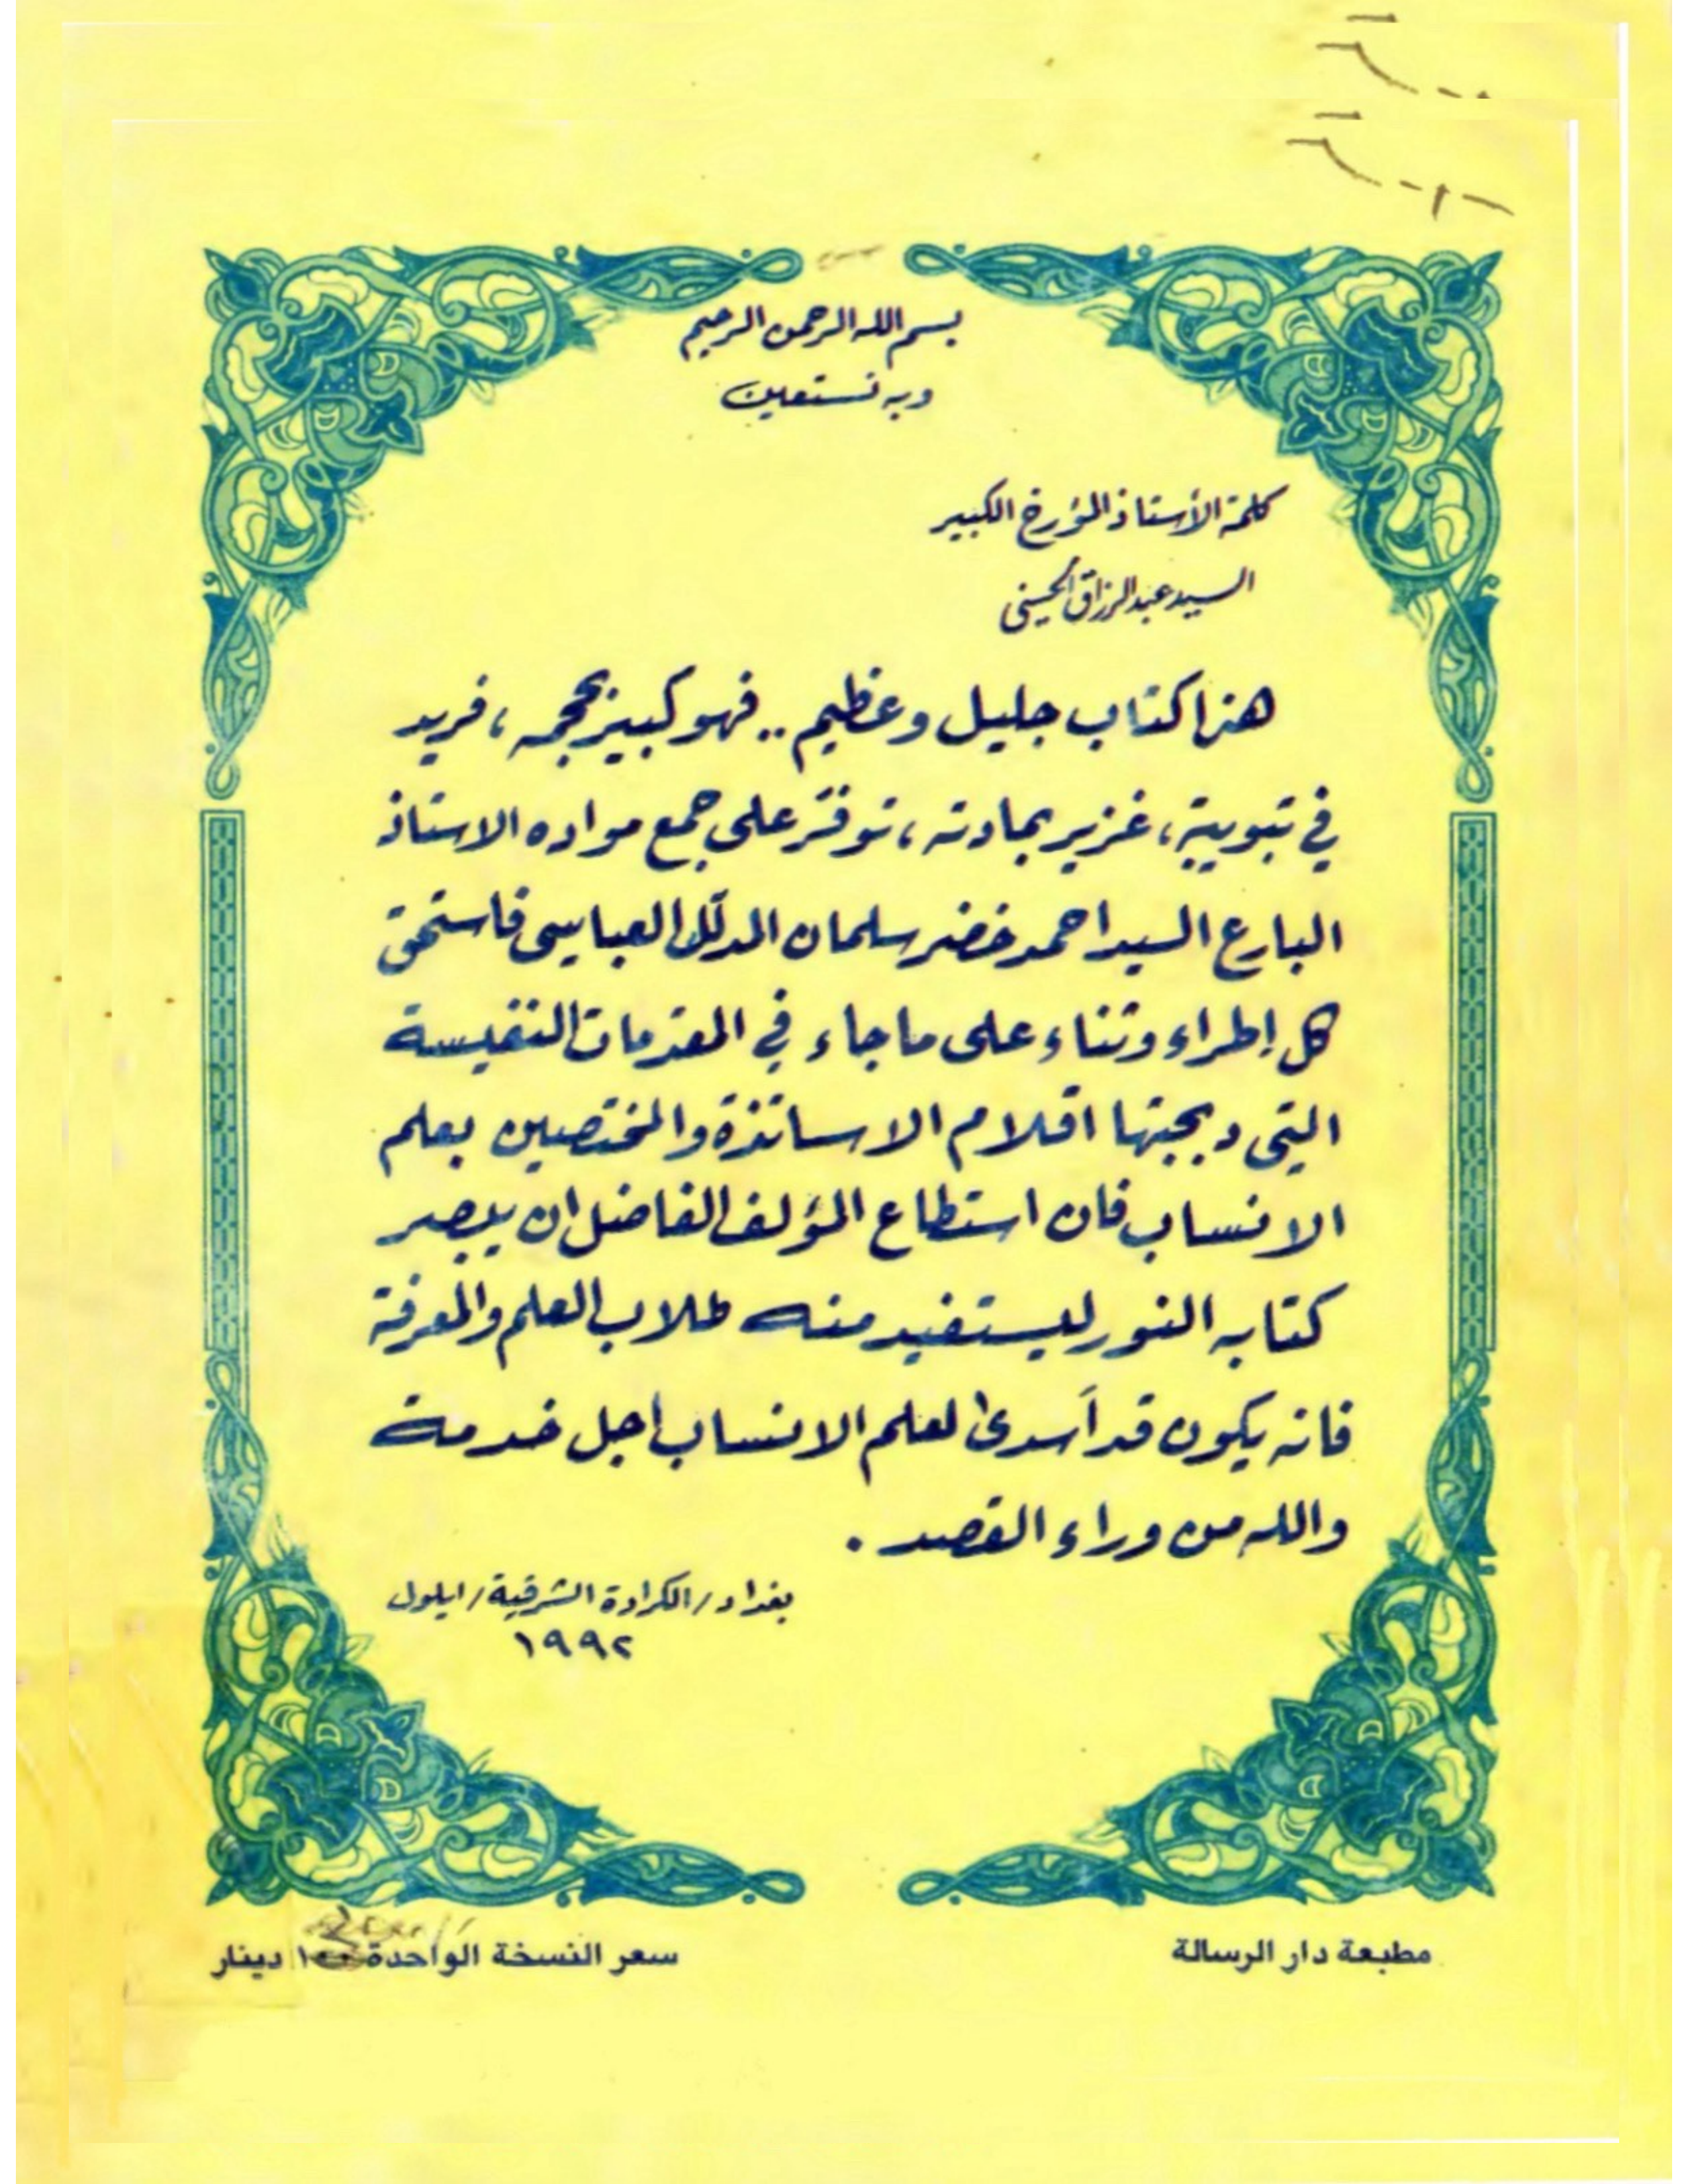 بسم الله الرحمن الرحيم
وبه نستعين
كلمة الأستاذ المؤرخ الكبير
السيد عبد الرزاق الحسني
هذا كتاب جليل وعظيم .. فهو كبير بحجمه ، فريد
في تبويبة ، غزير بمادته ، توفّر على جمع مواده الاستاذ
البارع السيد احمد خضر سلمان المدلّل العباسي فاستحق
كل إطراء وثناء على ما جاء في المقدمات النفيسة
التي دبجبتها اقلام الاساتذة والمختصين بعلم
الانساب فان استطاع المؤلف الفاضل ان يبصر
كتابه النور ليستفيد منه طلاب العلم والمعرفة
فانه يكون قد أسدى لعلم الانساب اجل خدمة
والله من وراء القصد .
بغداد / الكرادة الشرقية / ايلول
١٩٩٢
مطبعة دار الرسالة
سعر النسخة الواحدة دينار